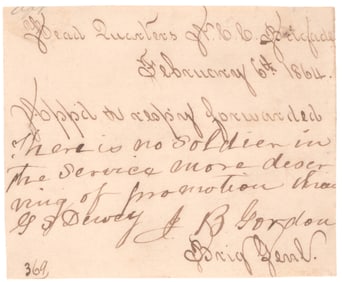 Head Quarters N. C. C. Brigade
February 6th 1864.
App'd & resp'y forwarded
There is no Soldier in
the Service more deser
ving of promotion than
G S Dewey J B Gordon
Brig Genl.
369